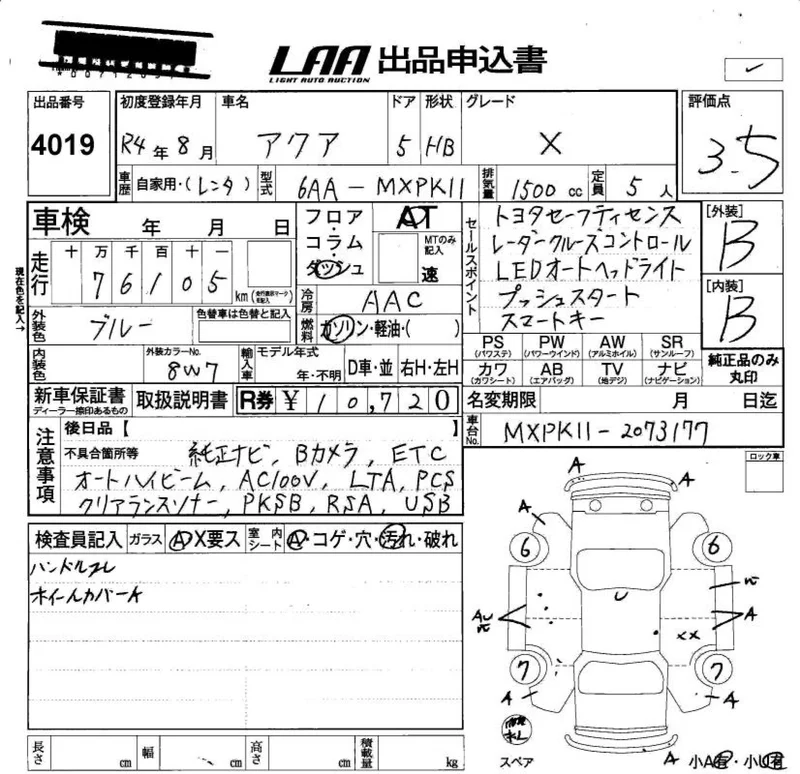 LAA 出品申込書
LIGHT AUTO AUCTION
出品番号 初度登録年月 車名 ドア 形状 グレード 評価点
4019 R4年8月 アクア 5 HB X 3.5
車歴 自家用・(レンタ) 型式 6AA-MXPK11 排気量 1500cc 定員 5人
車検 年 月 日
フロア・コラム・ダッシュ AT MTのみ記入 速
セールスポイント
トヨタセーフティセンス
レーダークルーズコントロール
LEDオートヘッドライト
プッシュスタート
スマートキー
[外装] B
[内装] B
現在色を記入→
走行 十 万 千 百 十 一
76105 km (走行距離マーク有記入)
冷房 AAC
外装色 ブルー 色替車は色替と記入
燃料 ガソリン・軽油・( )
内装色 外装カラーNo. 8W7 輸入車 モデル年式 年・不明 D車・並 右H・左H
PS (パワステ) PW (パワーウインド) AW (アルミホイル) SR (サンルーフ)
カワ (カワシート) AB (エアバッグ) TV (地デジ) ナビ (ナビゲーション)
純正品のみ丸印
新車保証書 ディーラー捺印あるもの 取扱説明書 R券 ¥10,720
名変期限 月 日迄
車台No. MXPK11-2073177
注意事項 後日品【 】
不具合箇所等 純正ナビ, Bカメラ, ETC
オートハイビーム, AC100V, LTA, PCS
クリアランスソナー, PKSB, RSA, USB
ロック車
検査員記入 ガラス A・X要ス 室内シート A・コゲ・穴・汚れ・破れ
ハンドルスレ
ホイールカバーA
A
A
A
A
6 6
U
AU
A
XX
7 7
A
A
スペア
A 小A有・小U有
長さ cm 幅 cm 高さ cm 積載量 kg